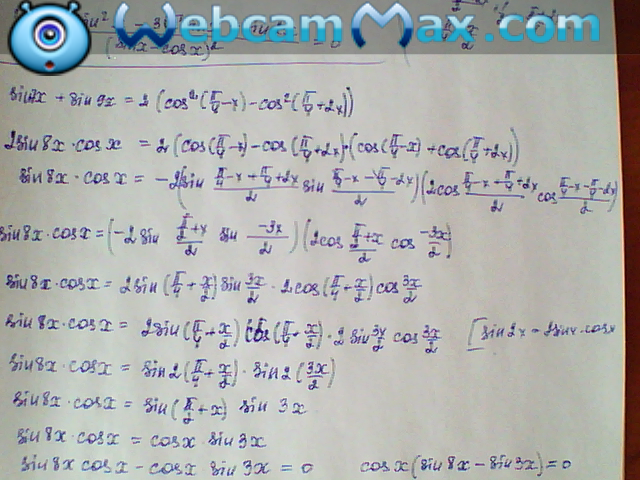 WebcamMax.com
(sinx-cosx)² = 0
sin7x + sin9x = 2(cos²(π/4-x)-cos²(π/4+2x))
2sin8x·cosx = 2(cos(π/4-x)-cos(π/4+2x))·(cos(π/4-x)+cos(π/4+2x))
sin8x·cosx = -2(sin (π/4-x+π/4+2x)/2 sin (π/4-x-π/4-2x)/2)(2cos (π/4-x+π/4+2x)/2 cos (π/4-x-π/4-2x)/2)
sin8x·cosx = (-2 sin (π/2+x)/2 sin (-3x)/2)(2cos (π/2+x)/2 cos (-3x)/2)
sin8x·cosx = 2sin(π/4+x/2)sin 3x/2 · 2cos(π/4+x/2)cos 3x/2
sin8x·cosx = 2sin(π/4+x/2)cos(π/4+x/2)·2sin 3x/2 cos 3x/2 [sin2x=2sinx·cosx
sin8x·cosx = sin2(π/4+x/2)·sin2(3x/2)
sin8x·cosx = sin(π/2+x) sin 3x
sin8x·cosx = cosx·sin3x
sin8x cosx - cosx sin3x = 0 cosx(sin8x-sin3x)=0